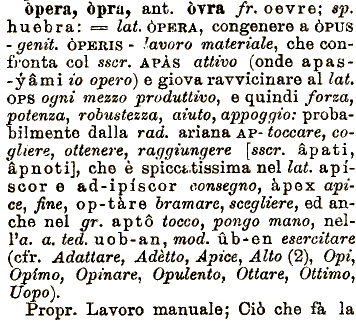 òpera, òpra, ant. òvra fr. oevre; sp.
huebra: = lat. ÒPERA, congenere a ÒPUS
- genit. ÒPERIS - lavoro materiale, che con-
fronta col sscr. APÀS attivo (onde apas-
-ŷâmi io opero) e giova ravvicinare al lat.
OPS ogni mezzo produttivo, e quindi forza,
potenza, robustezza, aiuto, appoggio: proba-
bilmente dalla rad. ariana AP- toccare, co-
gliere, ottenere, raggiungere [sscr. âpati,
âpnoti], che è spiccatissima nel lat. apí-
scor e ad-ipíscor consegno, àpex api-
ce, fine, op-tàre bramare, scegliere, ed an-
che nel gr. aptô tocco, pongo mano, nel-
l'a. a. ted. uob-an, mod. ûb-en esercitare
(cfr. Adattare, Adètto, Apice, Alto (2), Opi,
Opímo, Opinare, Opulento, Ottare, Ottimo,
Uopo).
Propr. Lavoro manuale; Ciò che fà la